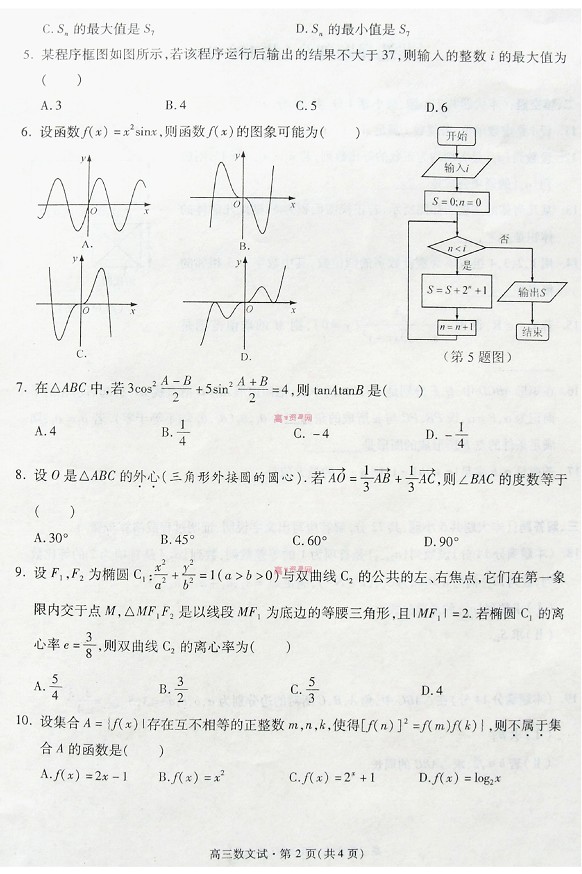 C. Sₙ 的最大值是 S₇ D. Sₙ 的最小值是 S₇
5. 某程序框图如图所示,若该程序运行后输出的结果不大于 37,则输入的整数 i 的最大值为
( )
A. 3 B. 4 C. 5 D. 6
6. 设函数 f(x) = x²sinx,则函数 f(x) 的图象可能为( )
y O x
A.
y O x
B.
y O x
C.
y O x
D.
开始
输入i
S = 0; n = 0
n < i
否
是
S = S + 2ⁿ + 1
n = n + 1
输出S
结束
(第 5 题图)
7. 在△ABC 中,若 3cos² (A − B)/2 + 5sin² (A + B)/2 = 4,则 tanAtanB 是( )
A. 4 B. 1/4 C. −4 D. −1/4
高考资源网
8. 设 O 是△ABC 的外心(三角形外接圆的圆心). 若 AO→ = 1/3 AB→ + 1/3 AC→,则∠BAC 的度数等于
( )
A. 30° B. 45° C. 60° D. 90°
高考资源网
9. 设 F₁,F₂ 为椭圆 C₁: x²/a² + y²/b² = 1(a > b > 0)与双曲线 C₂ 的公共的左、右焦点,它们在第一象
限内交于点 M,△MF₁F₂ 是以线段 MF₁ 为底边的等腰三角形,且|MF₁| = 2. 若椭圆 C₁ 的离
心率 e = 3/8,则双曲线 C₂ 的离心率为( )
A. 5/4 B. 3/2 C. 5/3 D. 4
10. 设集合 A = {f(x)|存在互不相等的正整数 m,n,k,使得[f(n)]² = f(m)f(k)},则不属于集
合 A 的函数是( )
A. f(x) = 2x − 1 B. f(x) = x² C. f(x) = 2ˣ + 1 D. f(x) = log₂x
高三数文试·第 2 页(共 4 页)